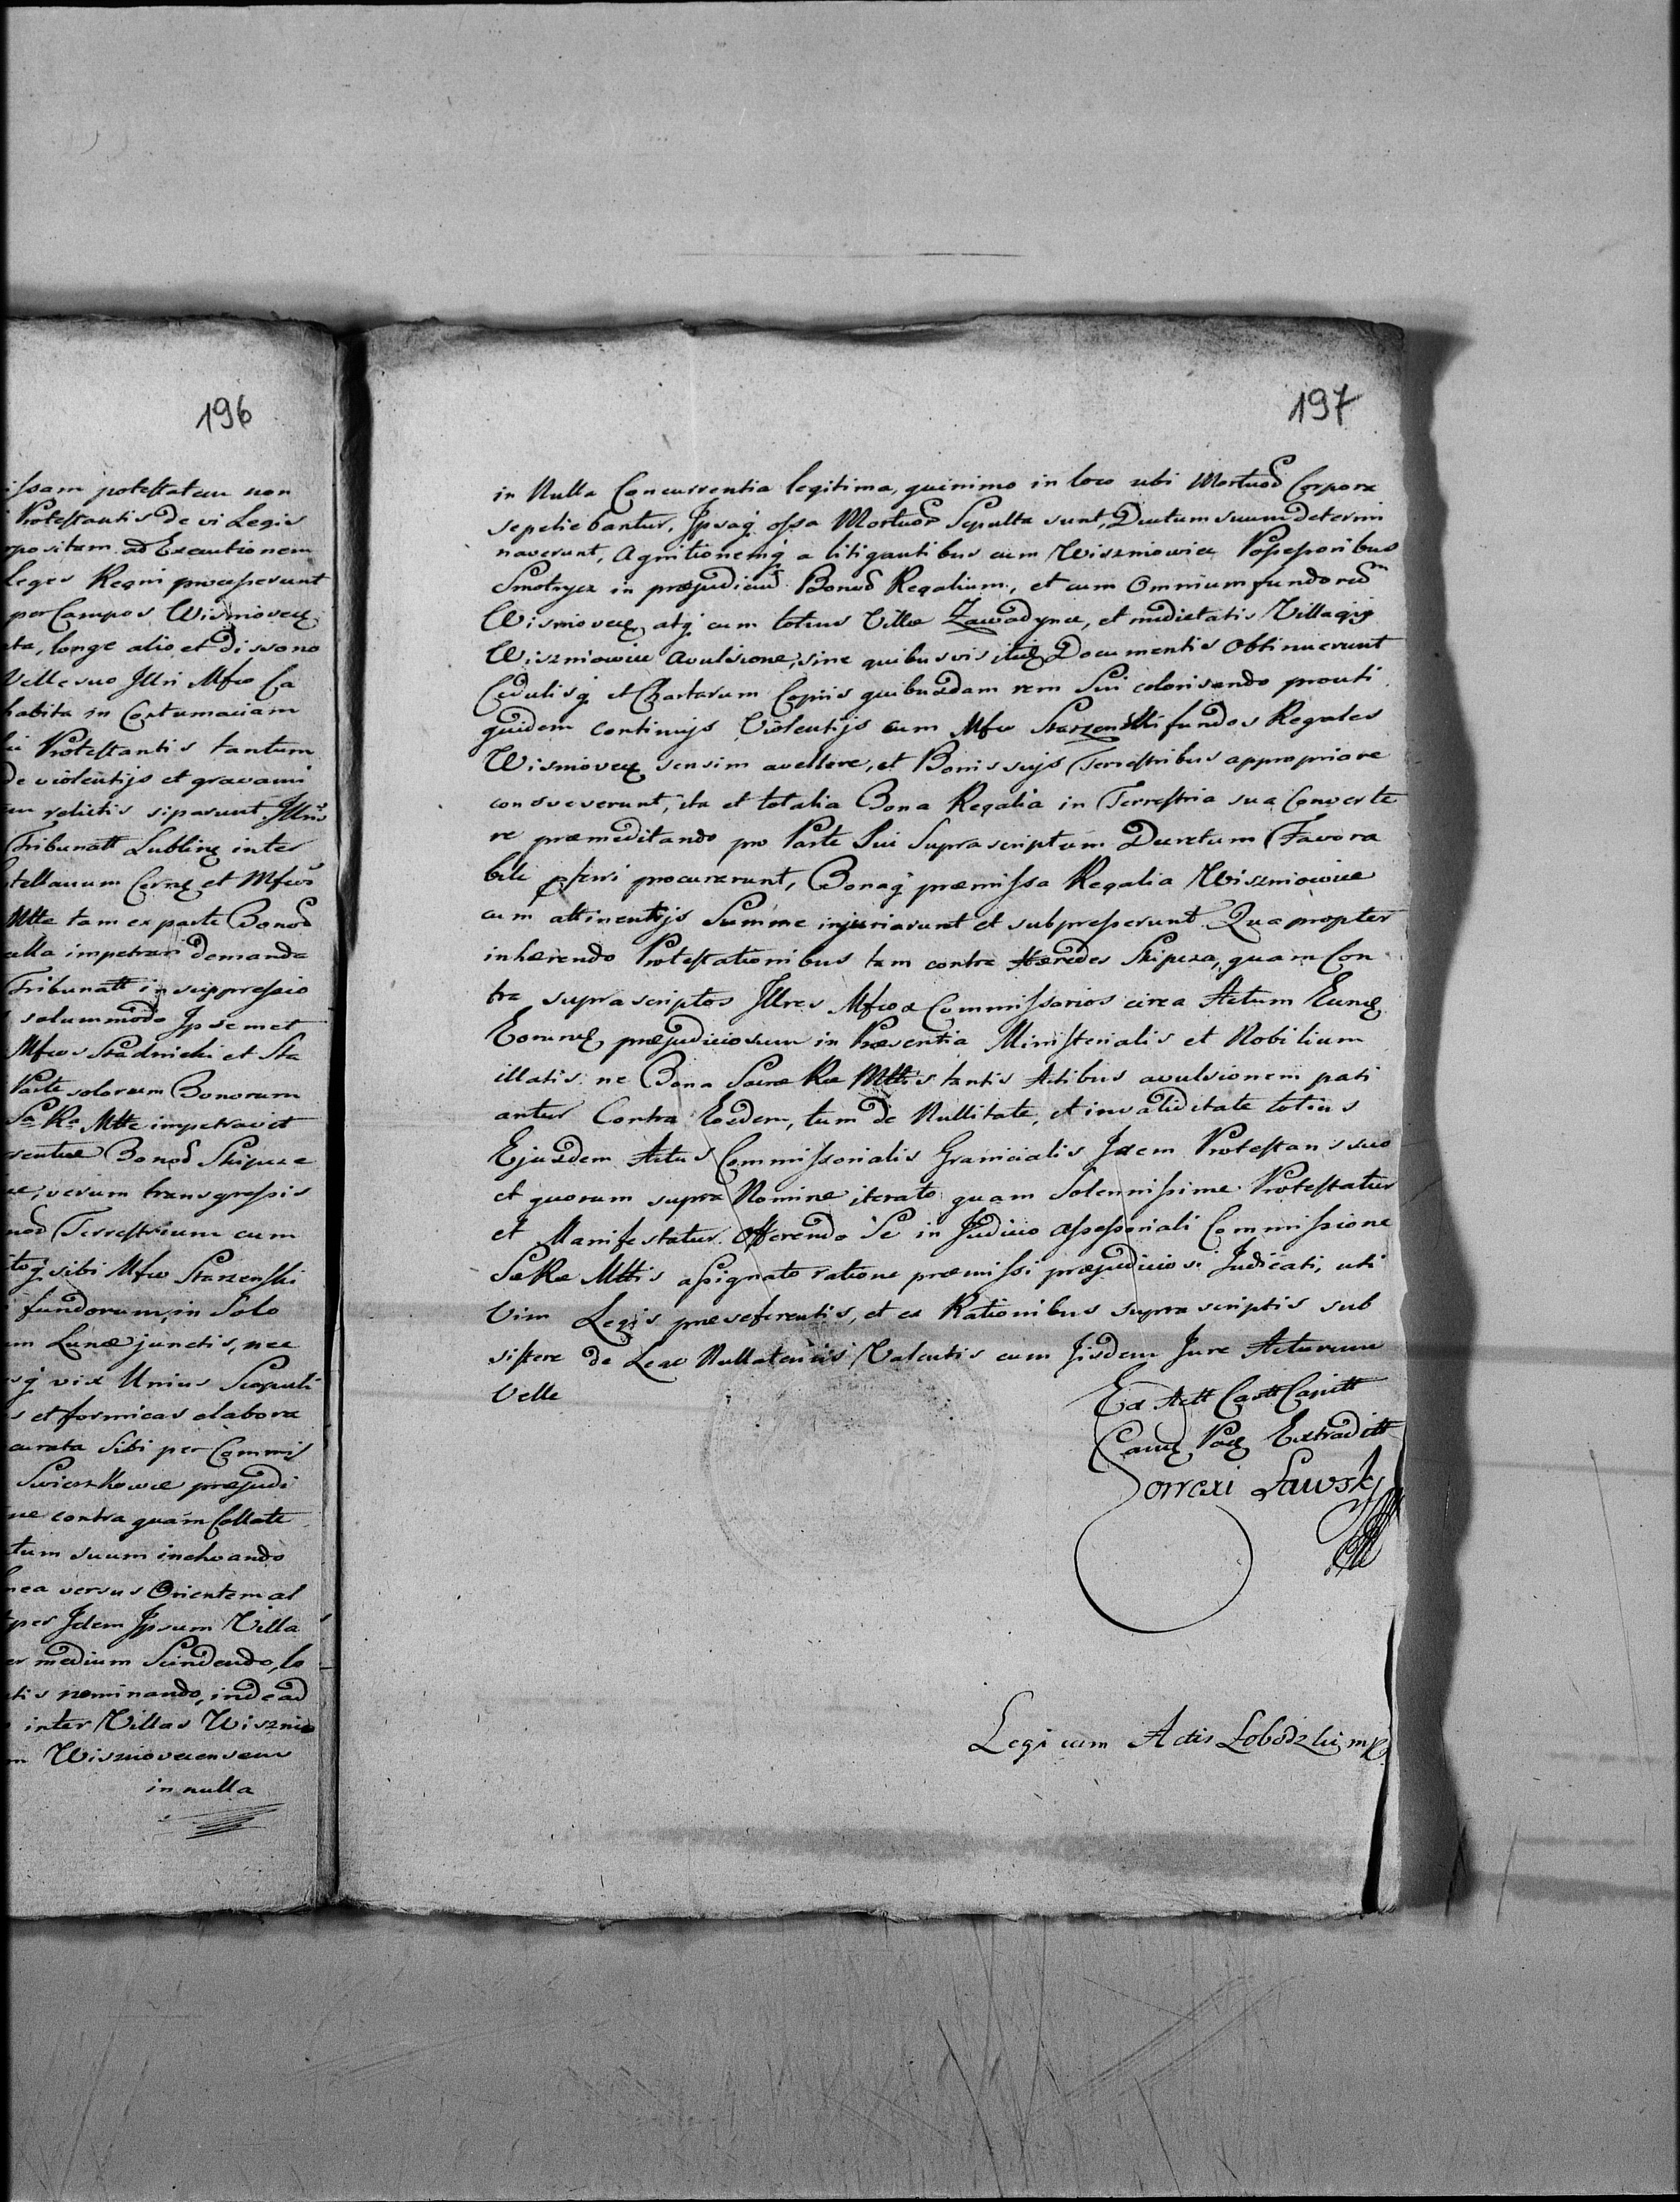 196
issam potestatem non
Protestantis de vi Legis
positam ad Executionem
Leges Regni processerunt
per Campos Wisniovecẽ
ta, longe alio et dissono
Velle suo Jllri Mfco Ca
habita in Contumaciam
Protestantis tantum
De violentijs et gravami
relictis siparunt Jllris
Tribunalt Lublinẽ inter
tellanum Cernẽ et Mfcos
Mtte tam ex parte Bonoꝝ
alla impetrari demanda
Tribunalt in suppressio
solummodo Jpsemet
Mfcos Stadnicki et Sta
Parte solorum Bonorum
Sa Ra Mtte impetravit
sentiæ Bonoꝝ Skipcze
verum transgressis
noꝝ Terrestrium cum
toq̃ sibi Mfco Starzenski
fundorum, in Solo
Lunæ junctis, nec
sq̃ vix Unius Scopuli
s et formicas elabora
curata Sibi per Commis
Swierszkowce præjudi
ne contra quam Collate
tum suum inchoando
nea versus Orientem al
per Jdem Jpsum Villa
er medium Scindendo, lo
tis nominando, inde ad
inter Villas Wisznio
Wisznioveensem
in nulla
197
in Nulla Concurrentia legitima, quinimo in loco ubi Mortuoꝝ Corpora
sepeliebantur, Jpsaq̃ ossa Mortuoꝝ Sepulta sunt, Ductum suum determi
naverunt, Agnitionemq̃ a litigantibus cum Wiszniowice Possessoribus
Smotrycz in præjudiciũ Bonoꝝ Regalium, et cum Omnium fundorũ
Wisniovecẽ, atq̃ cum totius Villæ Zawadynce, et medietatis Villaq̃
Wiszniowice avulsione, sine quibusvis Documentis Obtinuerunt
Cedulisq̃ et Chartarum Copiis quibusdam rem Sui colorisando prouti
quidem continuijs Violentijs cum Mfco Starzenski fundos Regales
Wisniovecẽ sensim avellere, et Bonis suijs Terrestribus appropriare
consveverunt, ita et totalia Bona Regalia in Terrestria sua Converte
re præmeditando pro Parte Sui Suprascriptum Ductum Favora
bili fieri procurarunt, Bonaq̃ præmissa Regalia Wiszniowice
cum attinentijs Summe injuriarunt et subpresserunt. Qua propter
inhærendo Protestationibus tam contra Hæredes Skipcza, quam Con
tra suprascriptos Jllres Mfcos Commissarios circa Actum Eunẽ
præjudiciosum in Præsentia Ministerialis et Nobilium
illatis: ne Bona Sacræ Ræ Mttis tantis Actibus avulsionem pati
antur Contra Eosdem, tum de Nullitate, et invaliditate totius
Ejusdem Actus Commissorialis Granicialis Jdem Protestans suo
et quorum supra Nomine iterato quam Solennissime Protestatur
et Manifestatur. Offerendo Se in Judicio Assessoriali Commissione
SæRæ Mttis assignato ratione præmissi præjudiciosi Judicati, uti
Vim Legis præseferentis, et ex Rationibus supra scriptis sub
sistere de Lege Nullatenus Valentis cum Jisdem Jure Acturum
Velle
Ex Actt Castt Capitt
Camẽ Podẽ Extraditt
Correxi Ławsky
Legi cum Actis Łobodzki mp